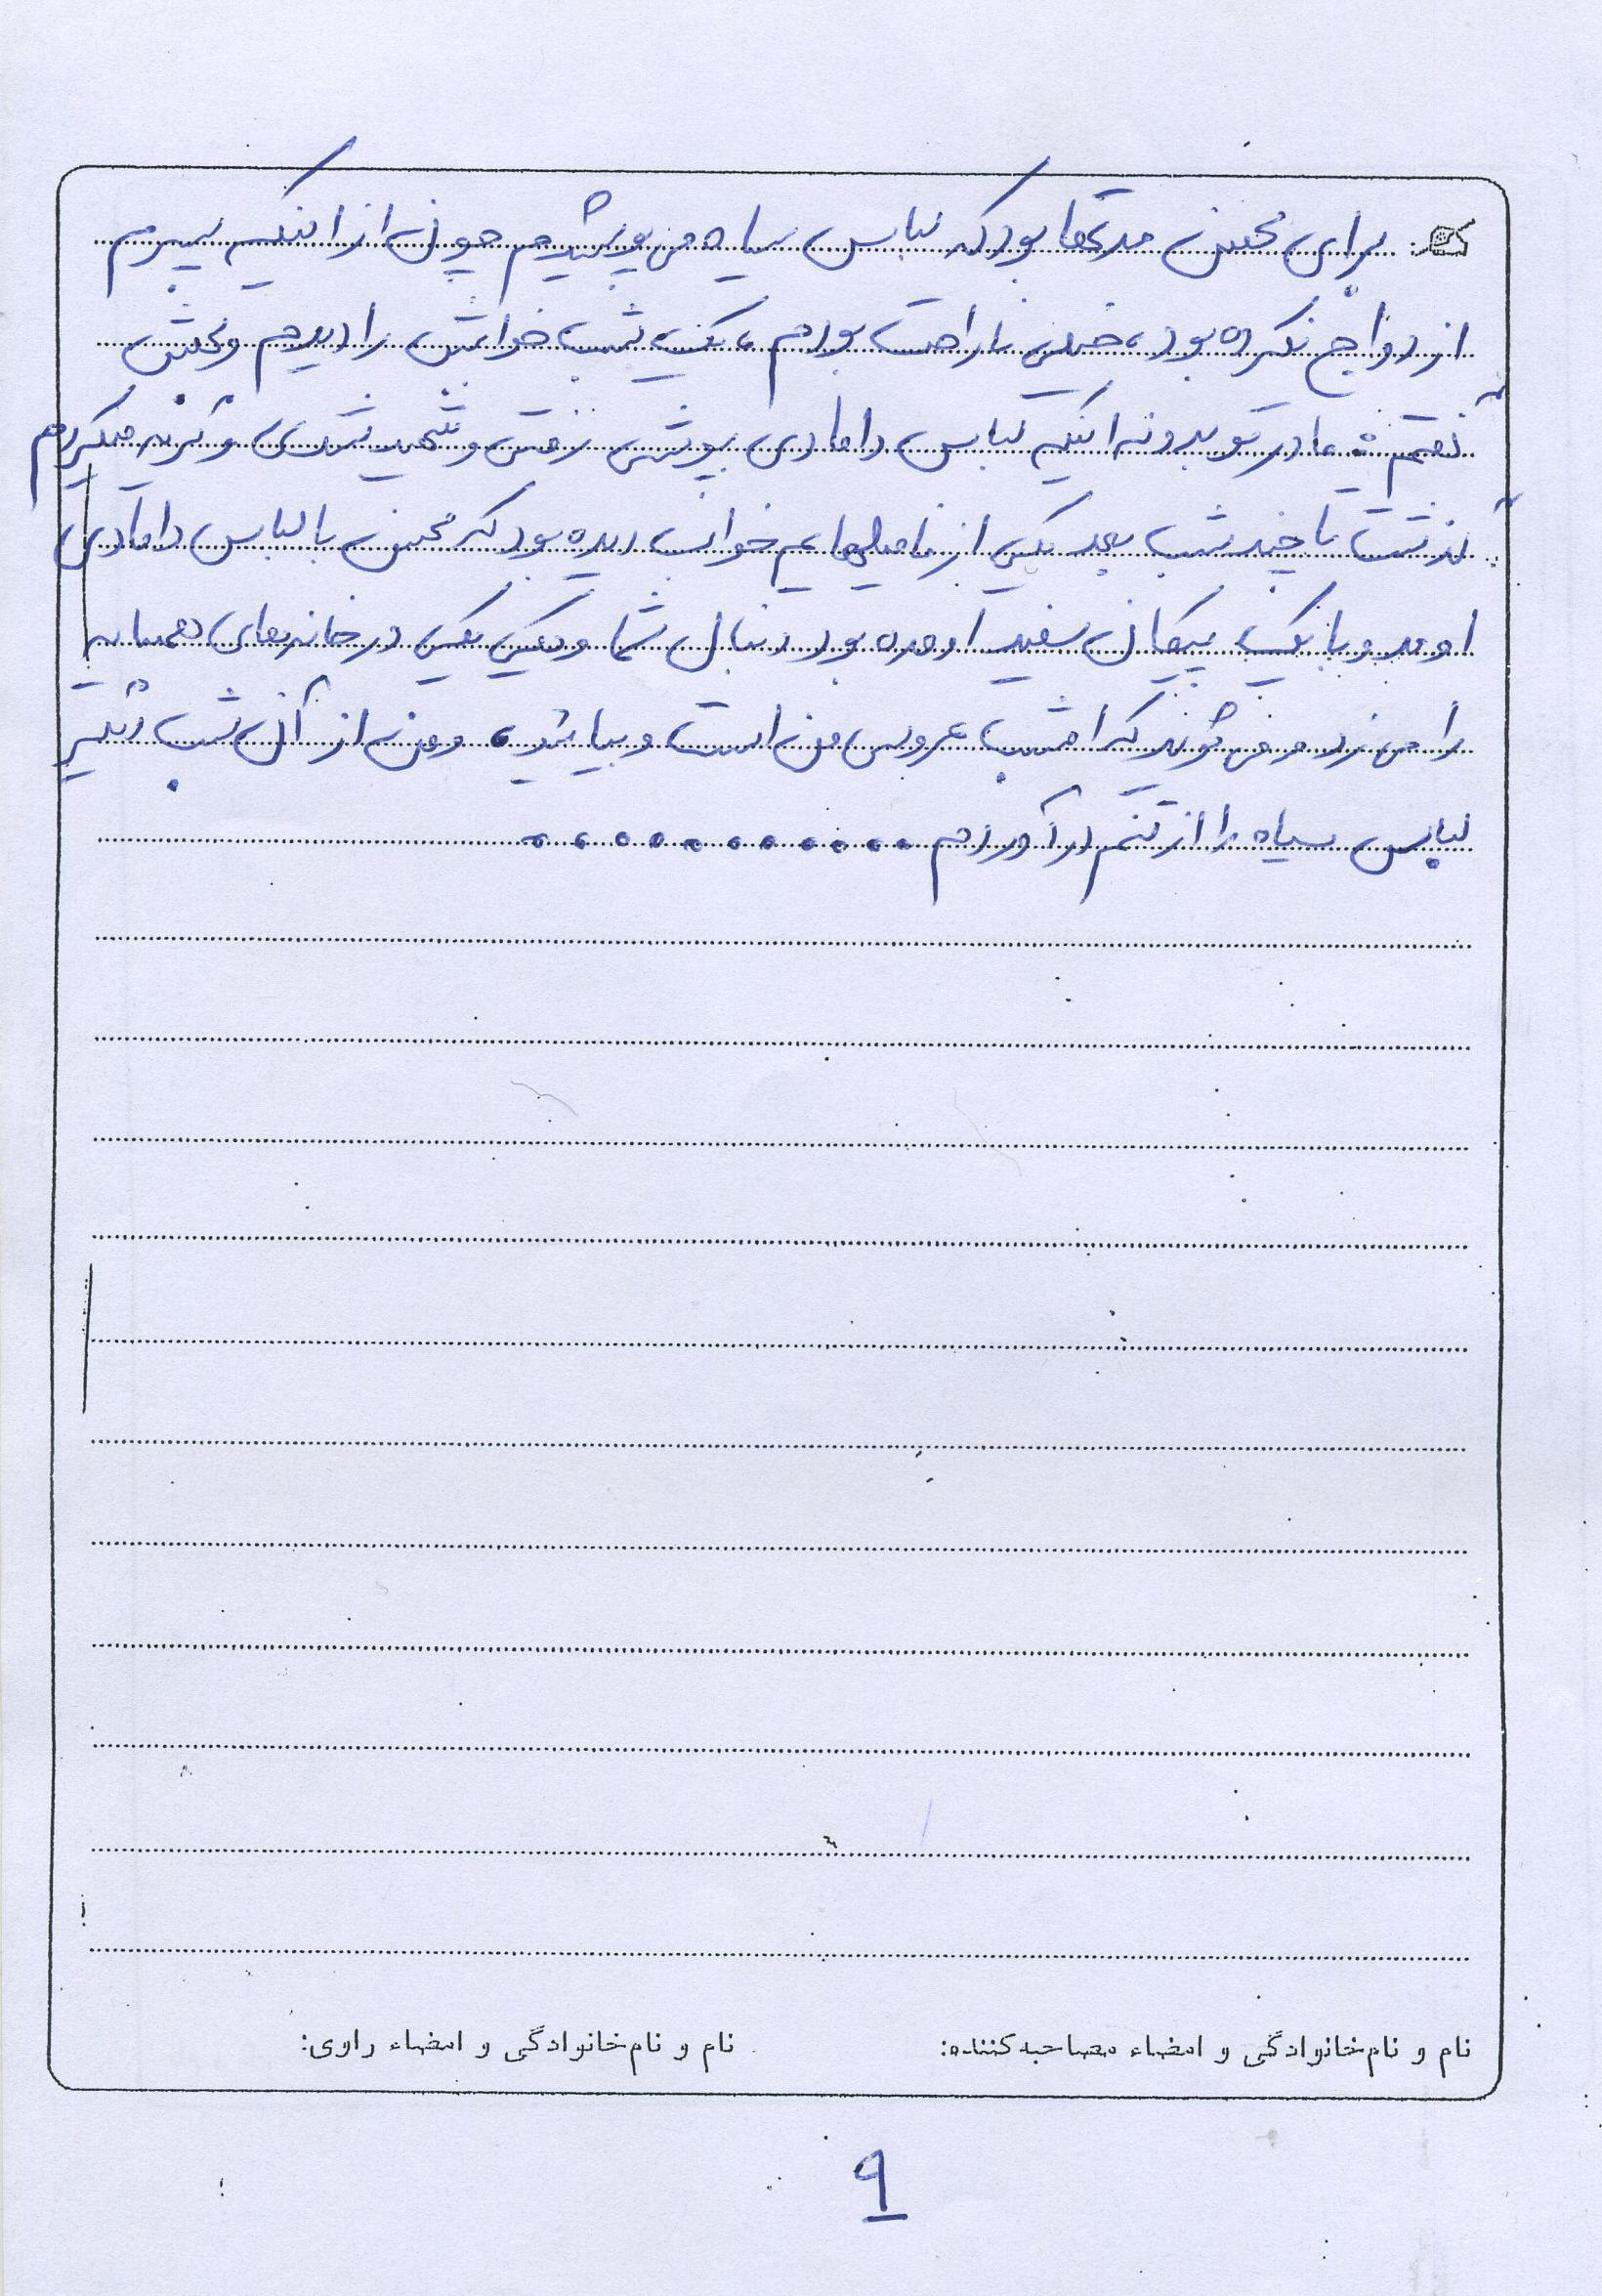 برای محسن مدتها بود که لباس سیاه می پوشیدم چون از اینکه پسرم
ازدواج نکرده بود، خیلی ناراحت بودم، یک شب خوابش را دیدم و بهش
گفتم: مادر تو بدون اینکه لباس دامادی بپوشی رفتی و شهید شدی و گریه میکردم
گذشت تا چند شب بعد یکی از فامیلهایم خواب دیده بود که محسن با لباس دامادی
اومد و با یک پیکان سفید اومده بود دنبال شما و یکی یکی در خانه های همسایه
را می زد و می گوید که امشب عروسی من است و بیائید، و من از آن شب دیگر
لباس سیاه را از تنم درآوردم ............
نام و نام‌خانوادگی و امضاء مصاحبه‌کننده: نام و نام‌خانوادگی و امضاء راوی:
۹